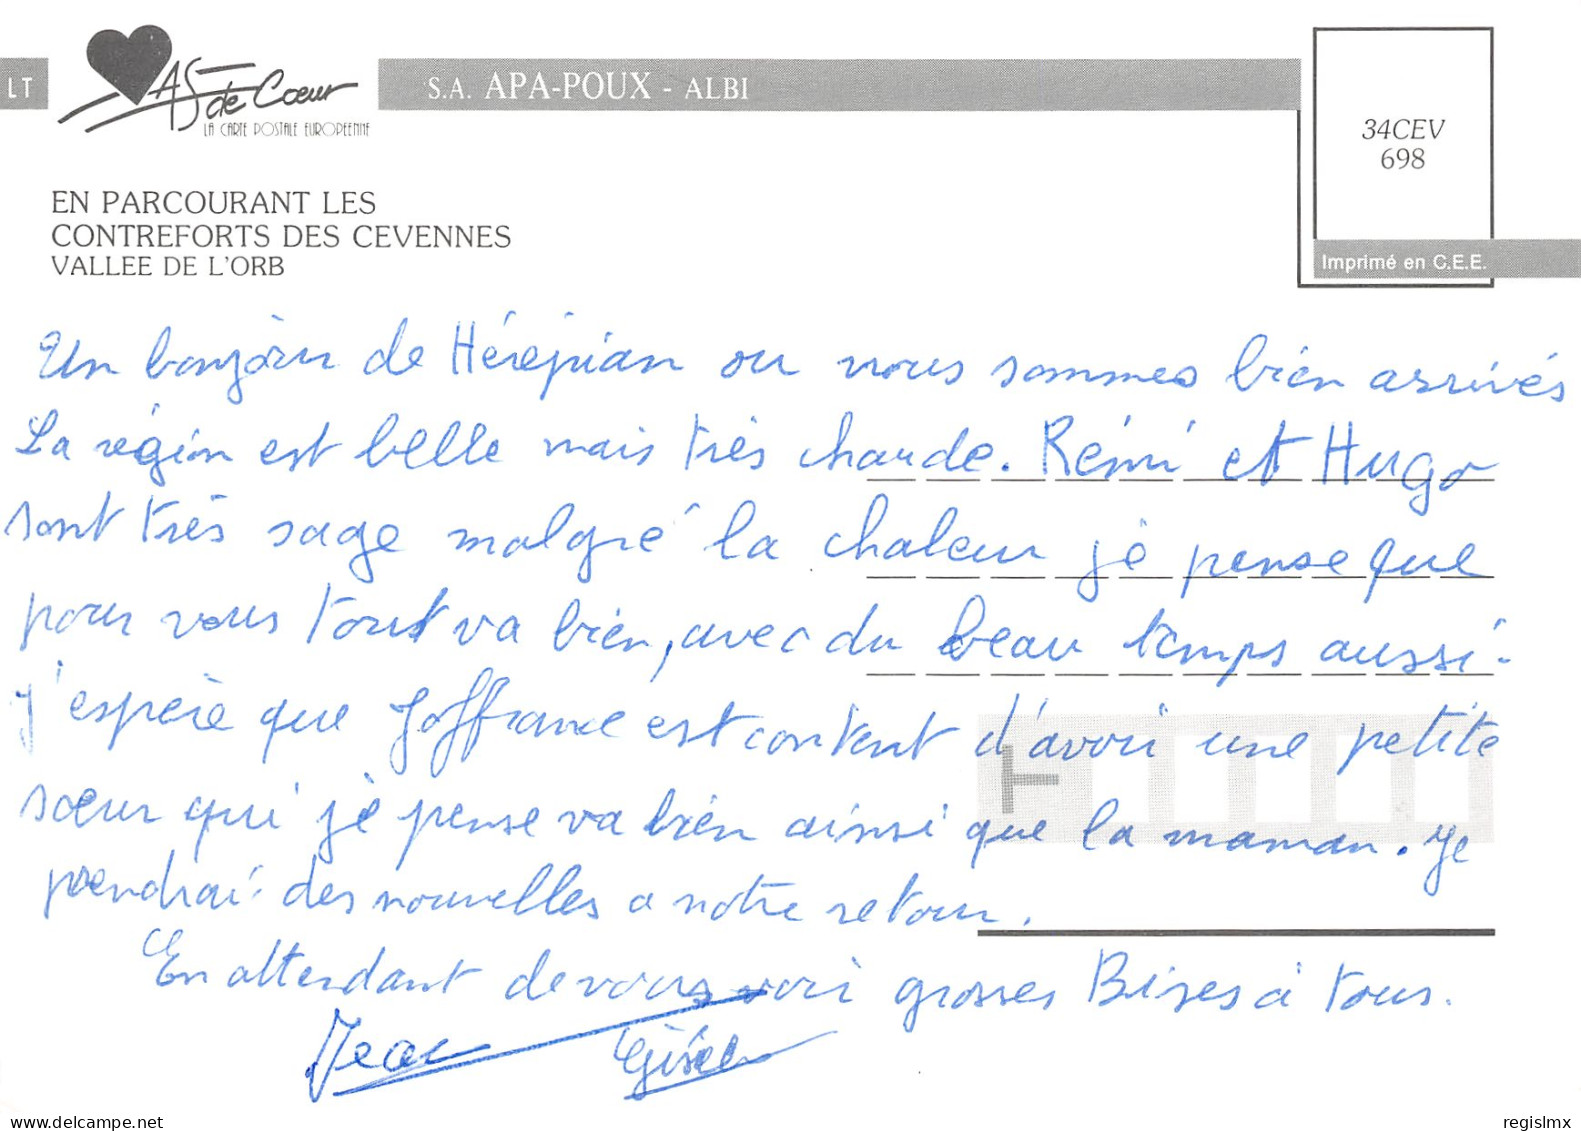 LT
As de Coeur
LA CARTE POSTALE EUROPEENNE
S.A. APA-POUX - ALBI
34CEV
698
Imprimé en C.E.E.
EN PARCOURANT LES
CONTREFORTS DES CEVENNES
VALLEE DE L'ORB
Un bonjour de Hérépian ou nous sommes bien arrivés
La région est belle mais très chaude. Rémi et Hugo
sont très sage malgré la chaleur je pense que
pour vous tout va bien, avec du beau temps aussi.
J'espère que Joffrance est content d'avoir une petite
sœur qui je pense va bien ainsi que la maman. Je
prendrai des nouvelles a notre retour.
En attendant de vous voir grosses Bises à tous.
Jean Gisèle
delcampe.net
regislmx